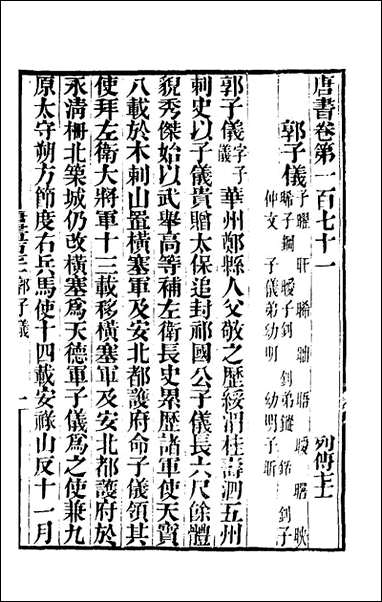 唐書卷第一百七十一　列傳
郭子儀 子曜 旰 晞 昢 晤 曖 曙 映
晞子鋼 曖子釗 釗弟鏦 銛 釗子
仲文 子儀弟幼明 幼明子昕
郭子儀字子儀華州鄭縣人父敬之歷綏渭桂壽泗五州
刺史以子儀貴贈太保追封祁國公子儀長六尺餘體
貌秀傑始以武舉高等補左衛長史累歷諸軍使天寶
八載於木剌山置橫塞軍及安北都護府命子儀領其
使拜左衛大將軍十三載移橫塞軍及安北都護府於
永清柵北築城仍改橫塞為天德軍子儀為之使兼九
原太守朔方節度右兵馬使十四載安祿山反十一月
郭子儀　一